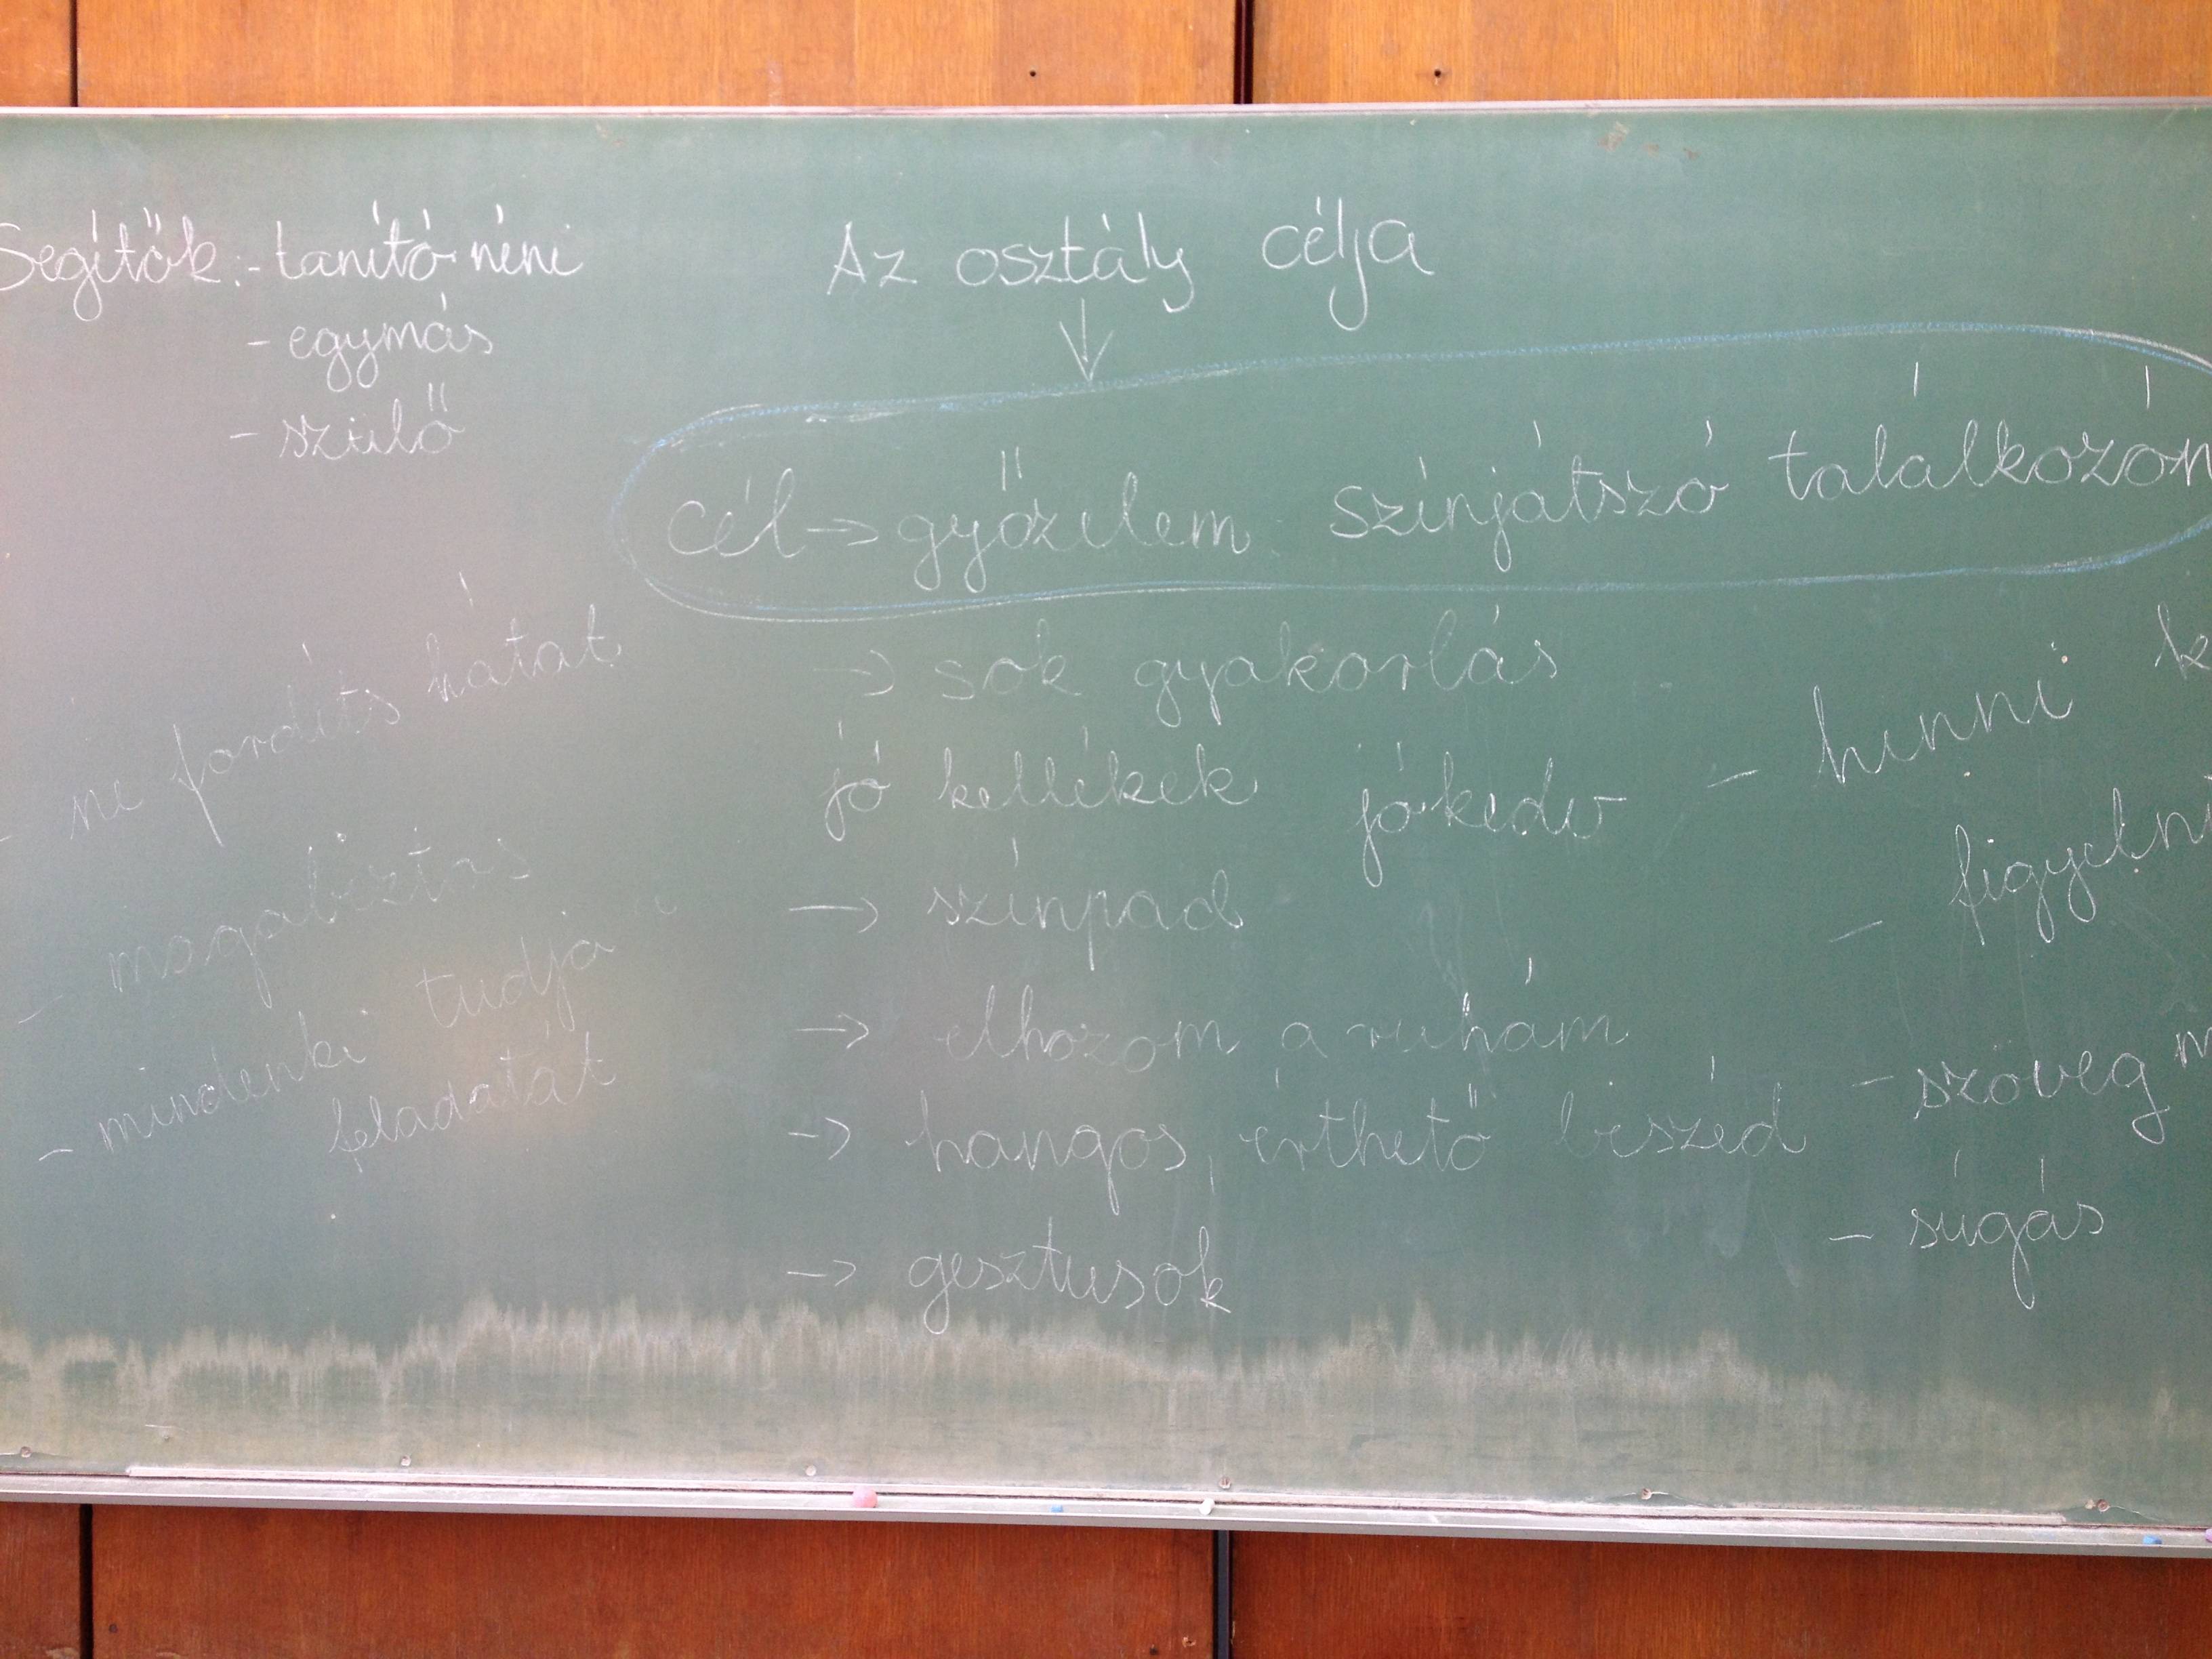 Segítők: - tanító néni
- egymás
- szülő
Az osztály célja
cél → győzelem színjátszó találkozón
→ sok gyakorlás
jó kellékek jókedv
→ színpad
→ elhozom a ruhám
→ hangos, érthető beszéd
→ gesztusok
- ne fordíts hátat
- magabiztos
- mindenki tudja
feladatát
- hinni
- figyelni
- szöveg
- súgás